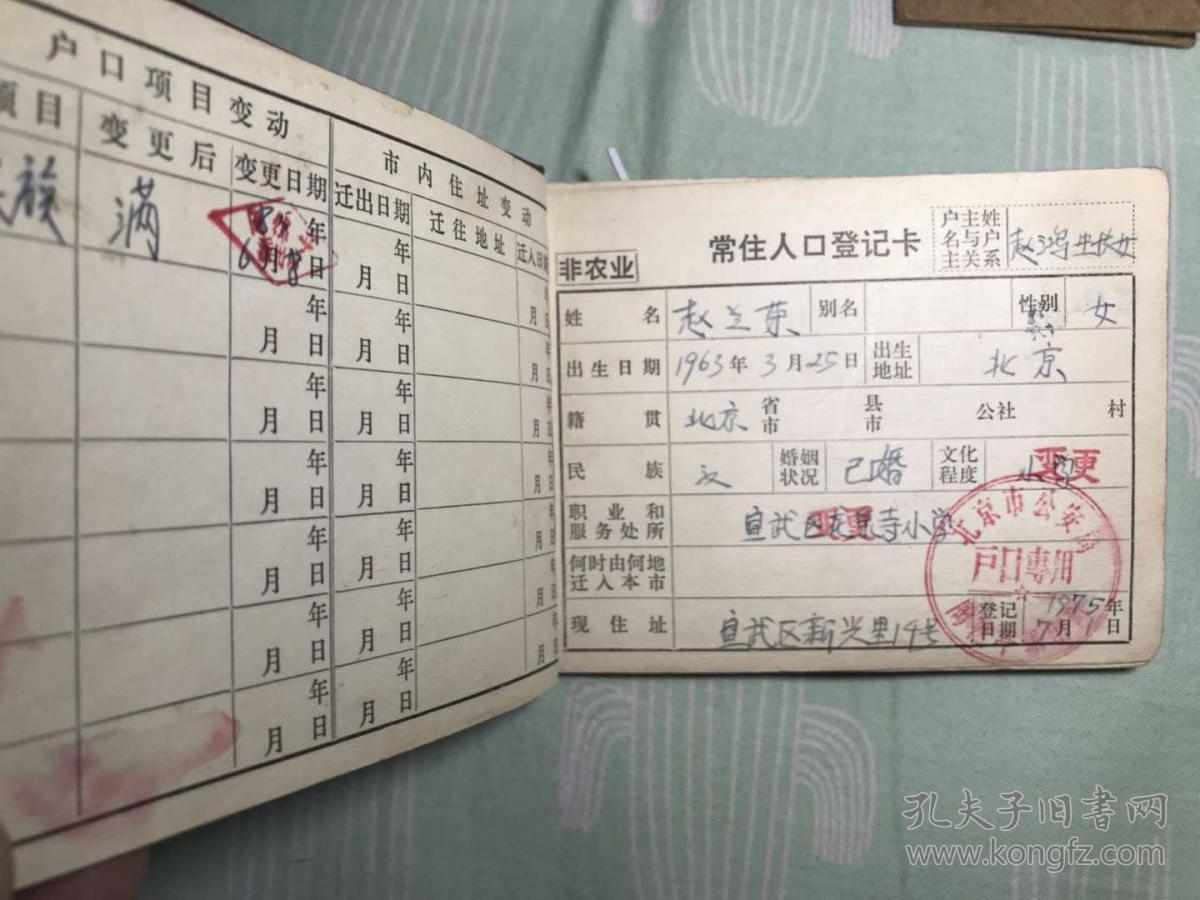 户口项目变动
市内住址变动
项目 变更后 变更日期 迁出日期 迁往地址 迁入日期
族 满 年
6月8日
年
月 日
年
月 日
年
月 日
年
月 日
年
月 日
年
月 日
年
月 日
户主姓
名与户
主关系
赵鸿生长女
常住人口登记卡
非农业
姓名 赵兰英 别名 性别 女
出生日期 1963年3月25日 出生地址 北京
籍贯 北京 省市 县市 公社 村
民族 汉 婚姻状况 已婚 文化程度 小学 变更
职业和服务处所 宣武区 寺小学 变更
何时由何地迁入本市
现住址 宣武区新兴里14号
登记日期 1975年7月1日
北京市公安局
户口專用
孔夫子旧书网
www.kongfz.com